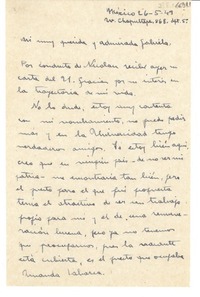 México 26-5-49
Av. Chapultepec 468. Apt. 5.
Mi muy querida y admirada Gabriela:
Por conducto de Nicolau recibí ayer
carta del 21. Gracias por su interés en
la trayectoria de mi vida.
No lo dude, estoy muy contenta
con mi nombramiento, no puedo pedir
mas y en la Universidad tengo
verdaderos amigos. Yo estoy bien aquí,
creo que en ningún país - de no ser mi
patria - me encontraría tan bien, pero
el puesto para el que fui propuesta
tenía el atractivo de ser un trabajo
propio para mí y el de una remune-
ración buena, pero ya no tenemos
que preocuparnos, pues la vacante
está cubierta, es el puesto que ocupaba
Amanda Labarca.